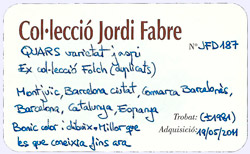 Col·lecció Jordi Fabre
QUARS varietat jaspi
Nº JFD187
Ex col·lecció Folch (duplicats)
Montjuïc, Barcelona ciutat, comarca Barcelonès,
Barcelona, Catalunya, Espanya
Trobat: (±1981)
Bonic color i dibuix. Millor que
Adquisició: 19/05/2011
les que coneixia fins ara